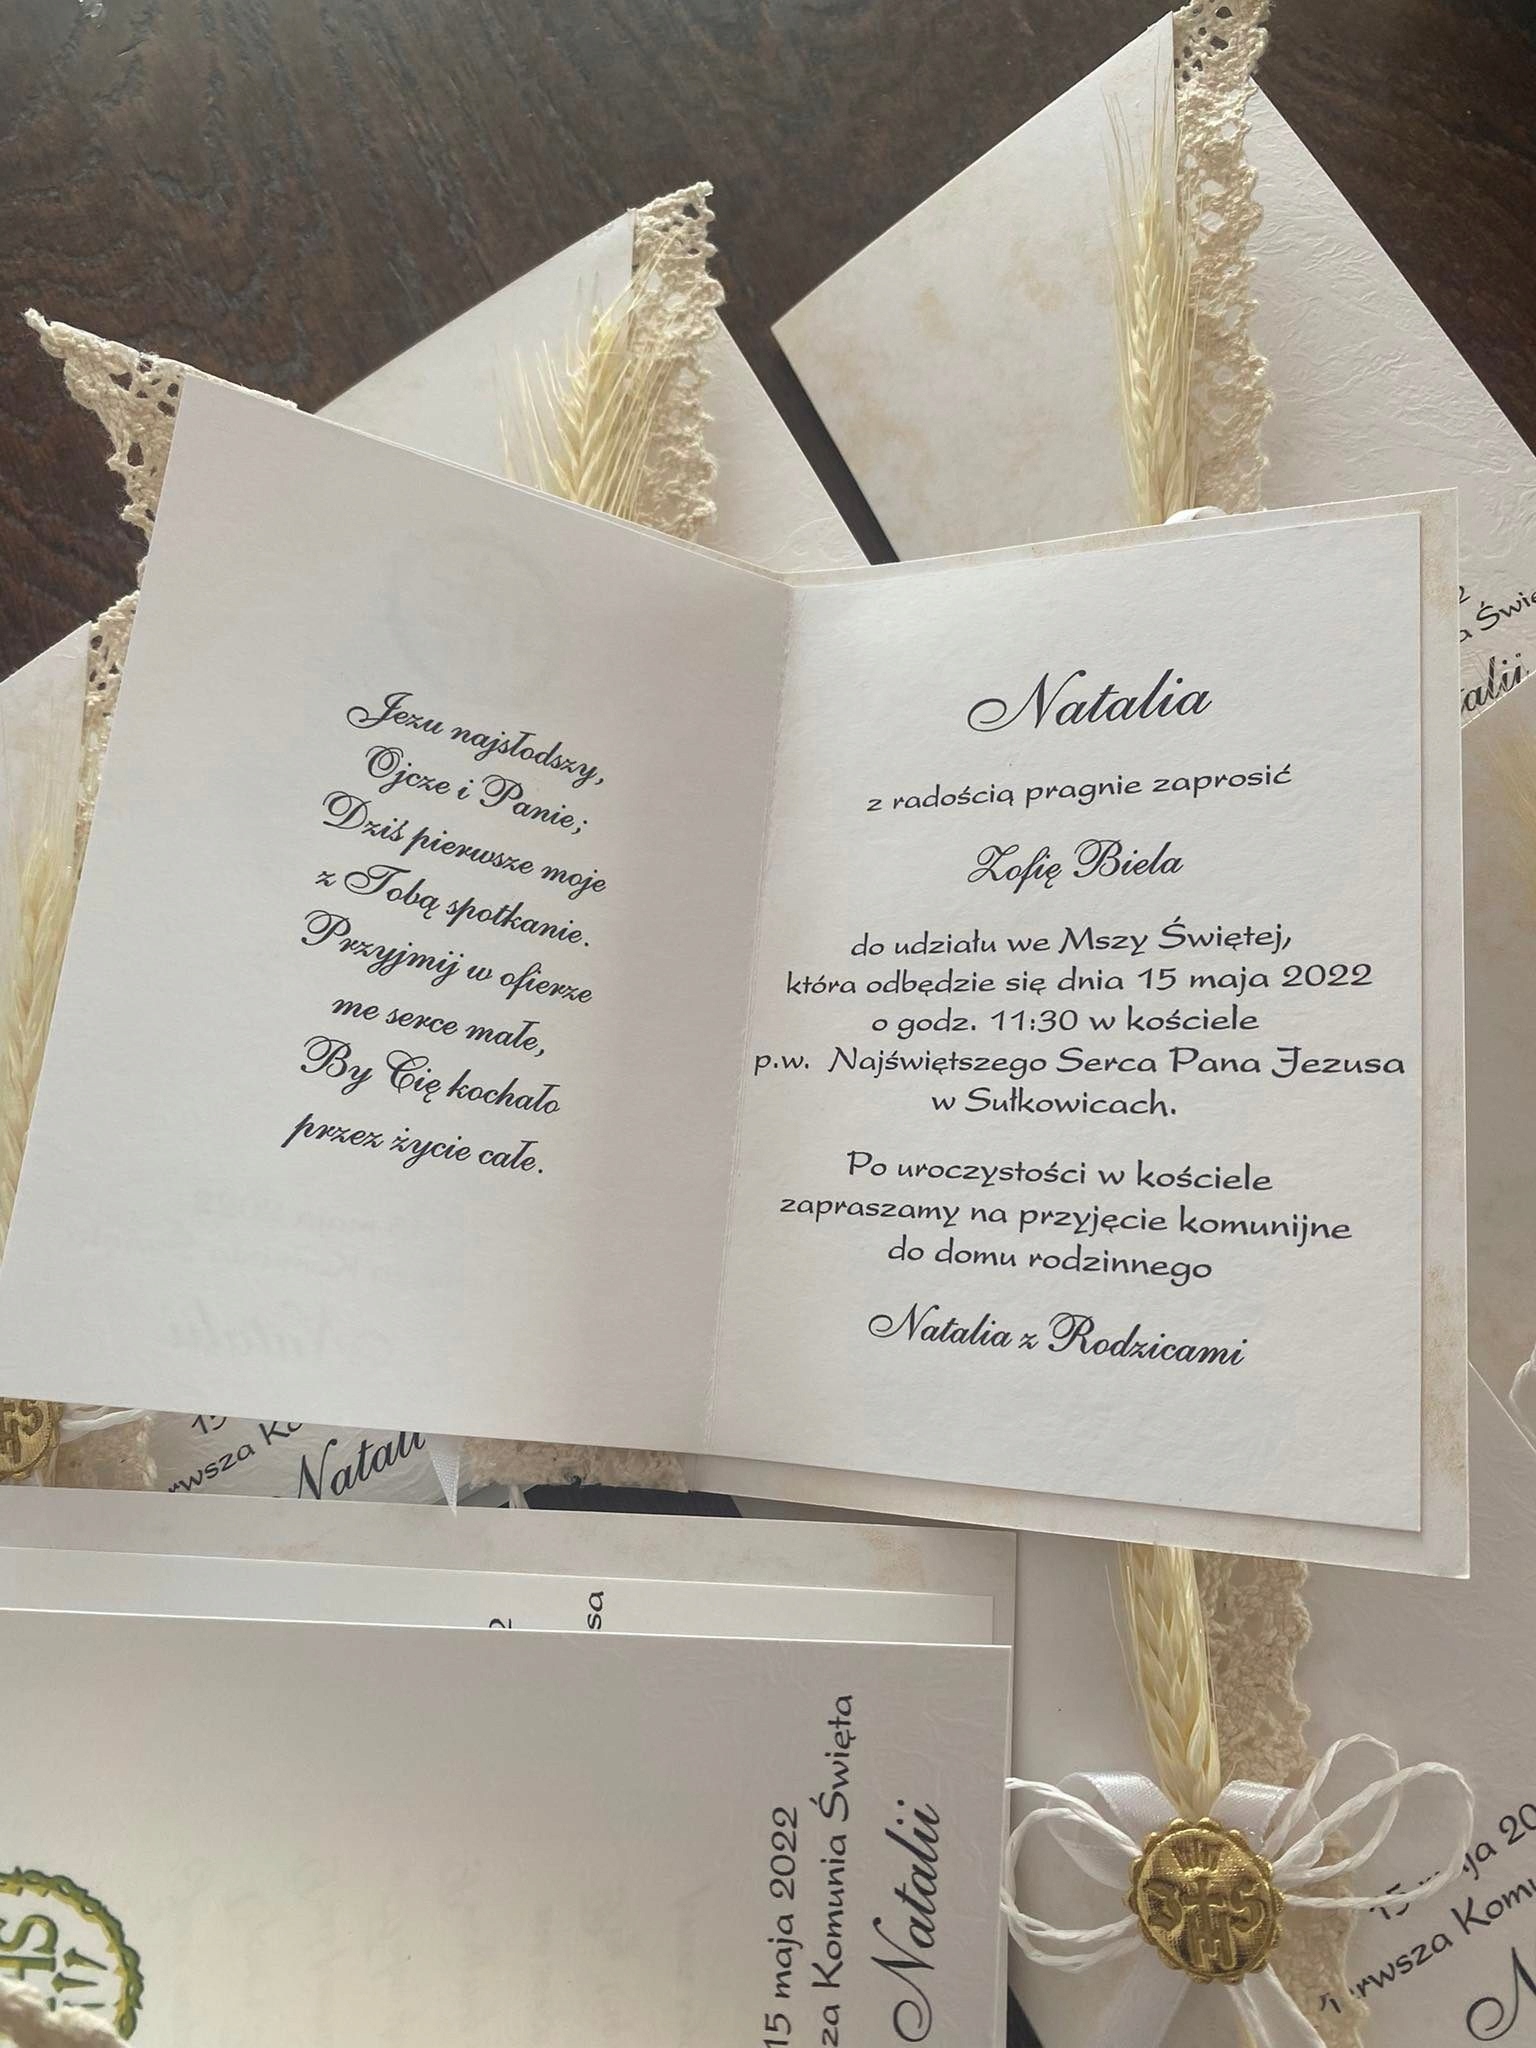 Jezu najsłodszy,
Ojcze i Panie;
Dziś pierwsze moje
z Tobą spotkanie.
Przyjmij w ofierze
me serce małe,
By Cię kochało
przez życie całe.
Natalia
z radością pragnie zaprosić
Zofię Biela
do udziału we Mszy Świętej,
która odbędzie się dnia 15 maja 2022
o godz. 11:30 w kościele
p.w. Najświętszego Serca Pana Jezusa
w Sułkowicach.
Po uroczystości w kościele
zapraszamy na przyjęcie komunijne
do domu rodzinnego
Natalia z Rodzicami
15 maja 2022
za Komunia Święta
Natalii
15 maja 20
IHS